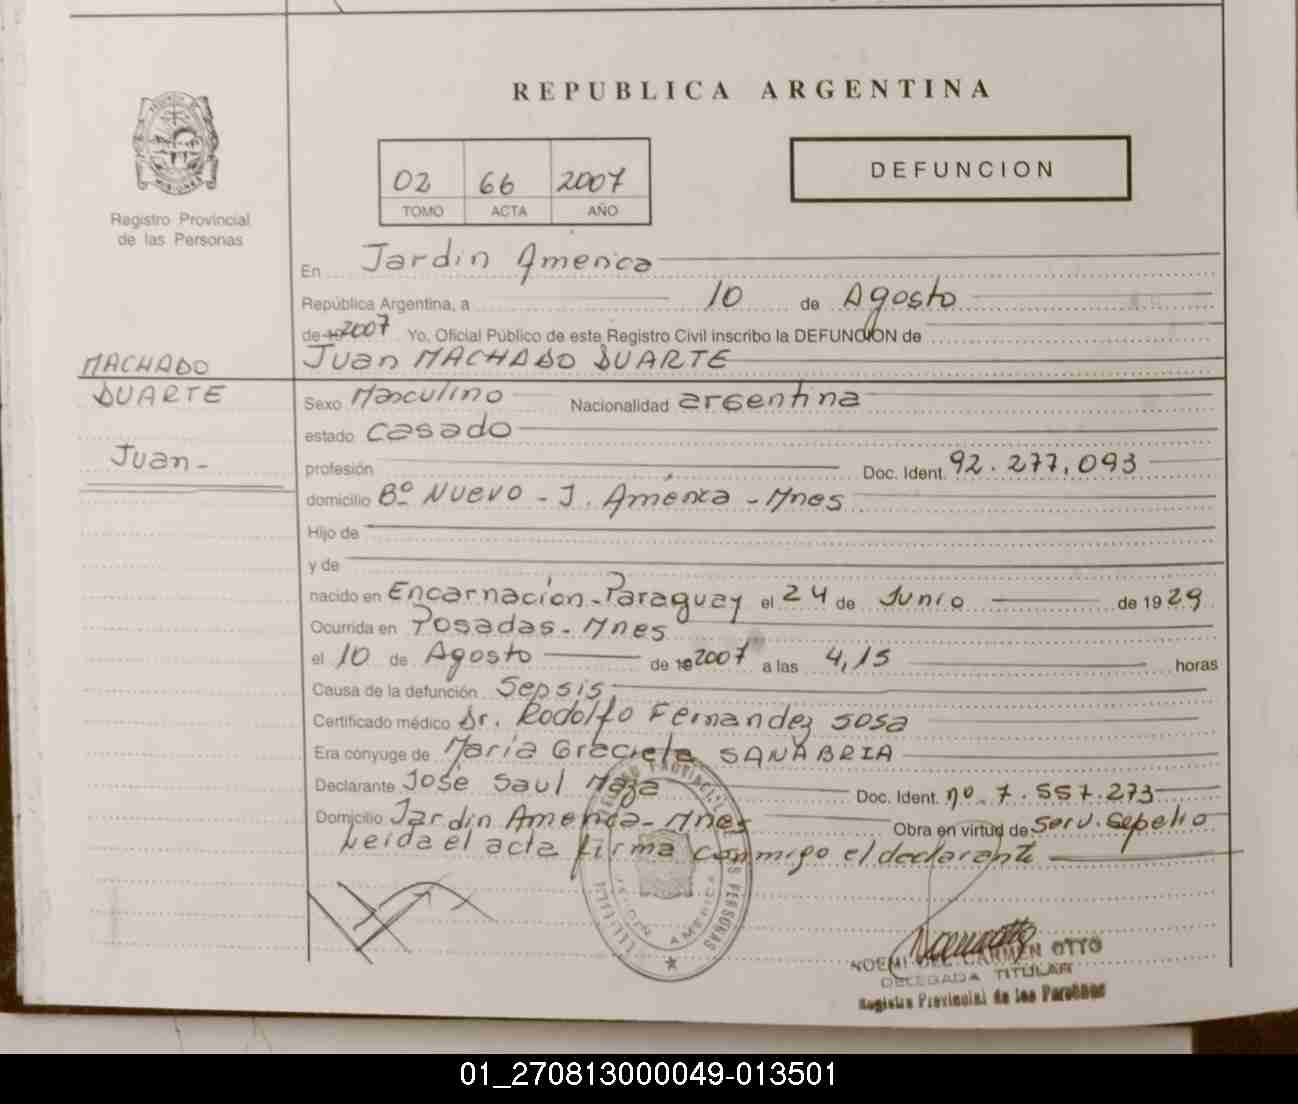 REPUBLICA ARGENTINA
DEFUNCION
02 66 2007
TOMO ACTA AÑO
Registro Provincial
de las Personas
En Jardin America
República Argentina, a 10 de Agosto
de 19 2007 Yo, Oficial Público de este Registro Civil inscribo la DEFUNCION de
Juan MACHADO DUARTE
MACHADO
DUARTE
Juan-
Sexo Masculino Nacionalidad argentina
estado casado
profesión Doc. Ident. 92.277,093
domicilio Bº Nuevo - J. América - Mnes
Hijo de
y de
nacido en Encarnación-Paraguay el 24 de Junio de 1929
Ocurrida en Posadas-Mnes
el 10 de Agosto de 19 2007 a las 4,15 horas
Causa de la defunción Sepsis
Certificado médico Dr. Rodolfo Fernandez Sosa
Era cónyuge de Maria Graciela SANABRIA
Declarante Jose Saul Maza Doc. Ident. nº 7.557.273
Domicilio Jardin America-Mnes Obra en virtud de Serv. Sepelio
Leida el acta firma conmigo el declarante
REGISTRO PROVINCIAL DE LAS PERSONAS
JARDIN AMERICA
NOEMI DEL CARMEN OTTO
DELEGADA TITULAR
Registro Provincial de las Personas
01_270813000049-013501